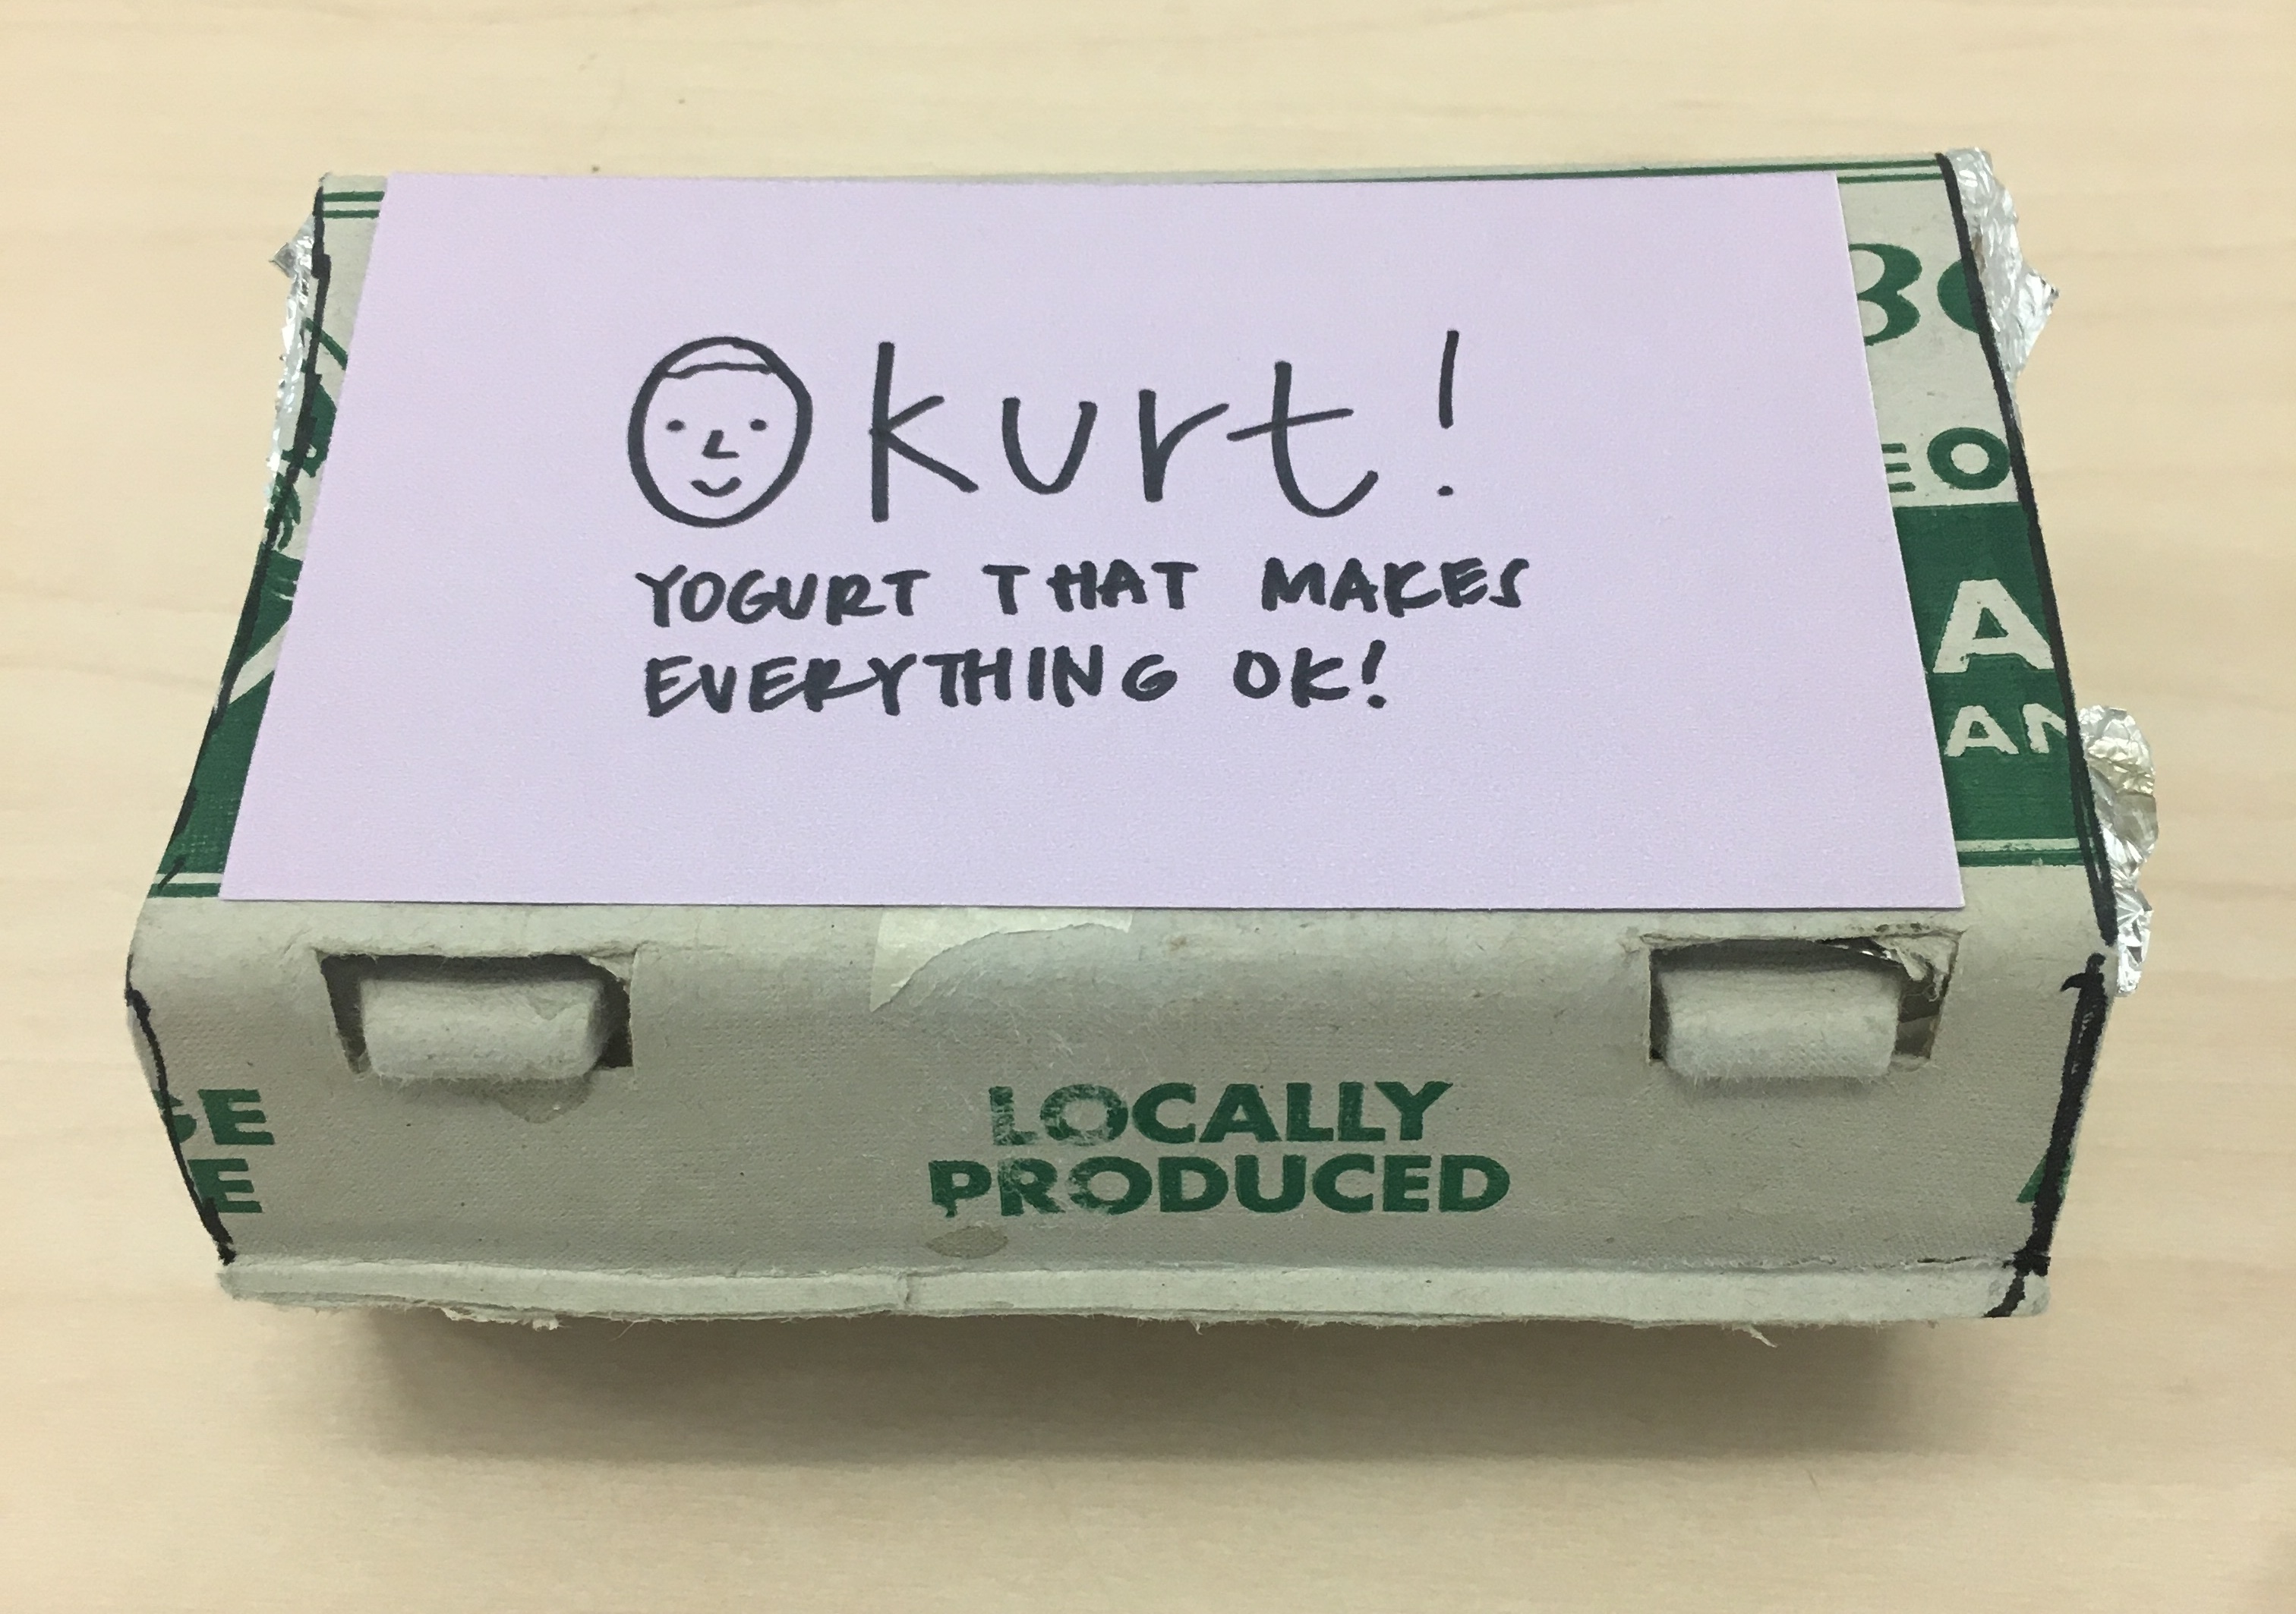 Okurt!
YOGURT THAT MAKES
EVERYTHING OK!
EO
A
AN
LOCALLY
PRODUCED